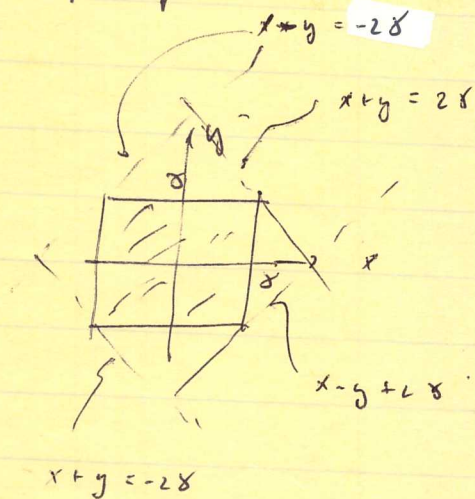 x - y = -2γ
x + y = 2γ
y
γ
γ
x
x - y + 2γ
x + y = -2γ